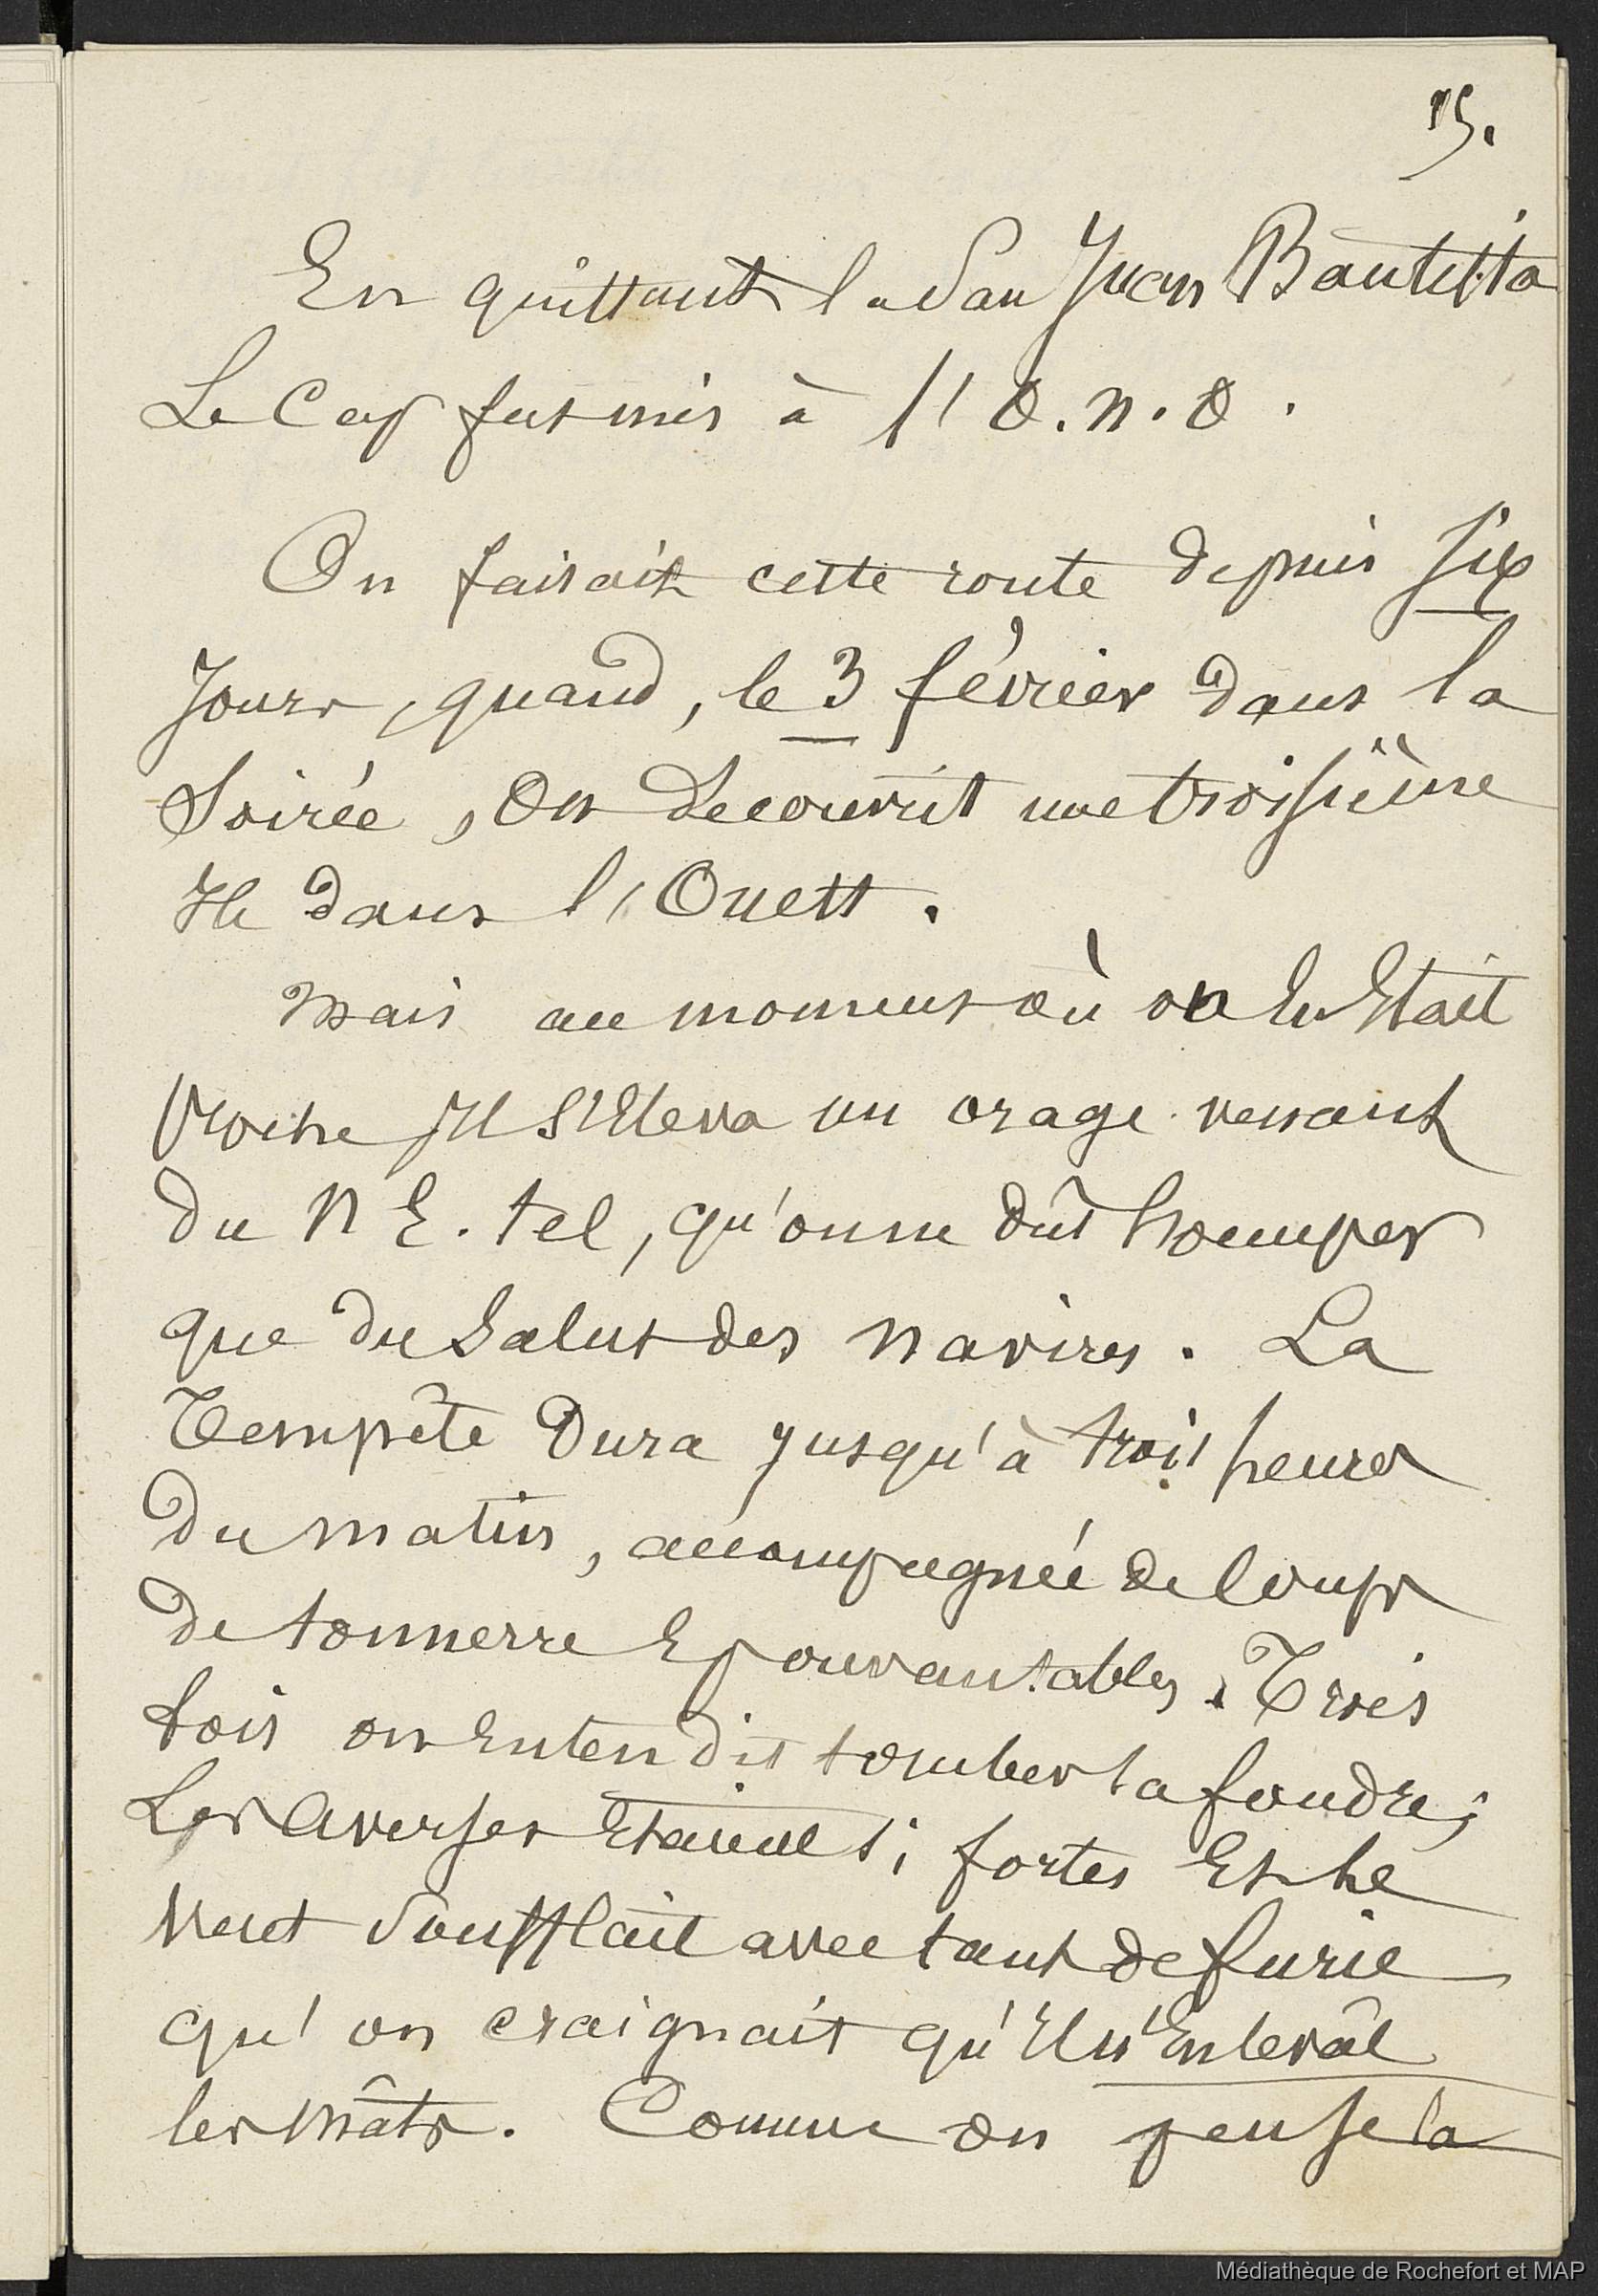 15.
En quittant la San Juan Bautista
Le Cap fut mis à l'O.N.O.
On faisait cette route depuis six
Jours, quand, le 3 février dans la
Soirée, On decouvrit une troisième
Ile dans l'Ouest.
Mais au moment où on En Etait
Proche Il S'Eleva un orage venant
du N E. tel, qu'on ne dût s'occuper
que du Salut des navires. La
Tempête Dura Jusqu'à trois heures
Du matin, accompagnée de Coups
de tonnerre Epouvantables. Trois
fois on Entendit tomber la foudre;
Les Averses Etaient si fortes Et le
Vent Soufflait avec tant de furie
qu'on craignait qu'Il n'Enlevât
les Mâts. Comme on pense la
Médiathèque de Rochefort et MAP